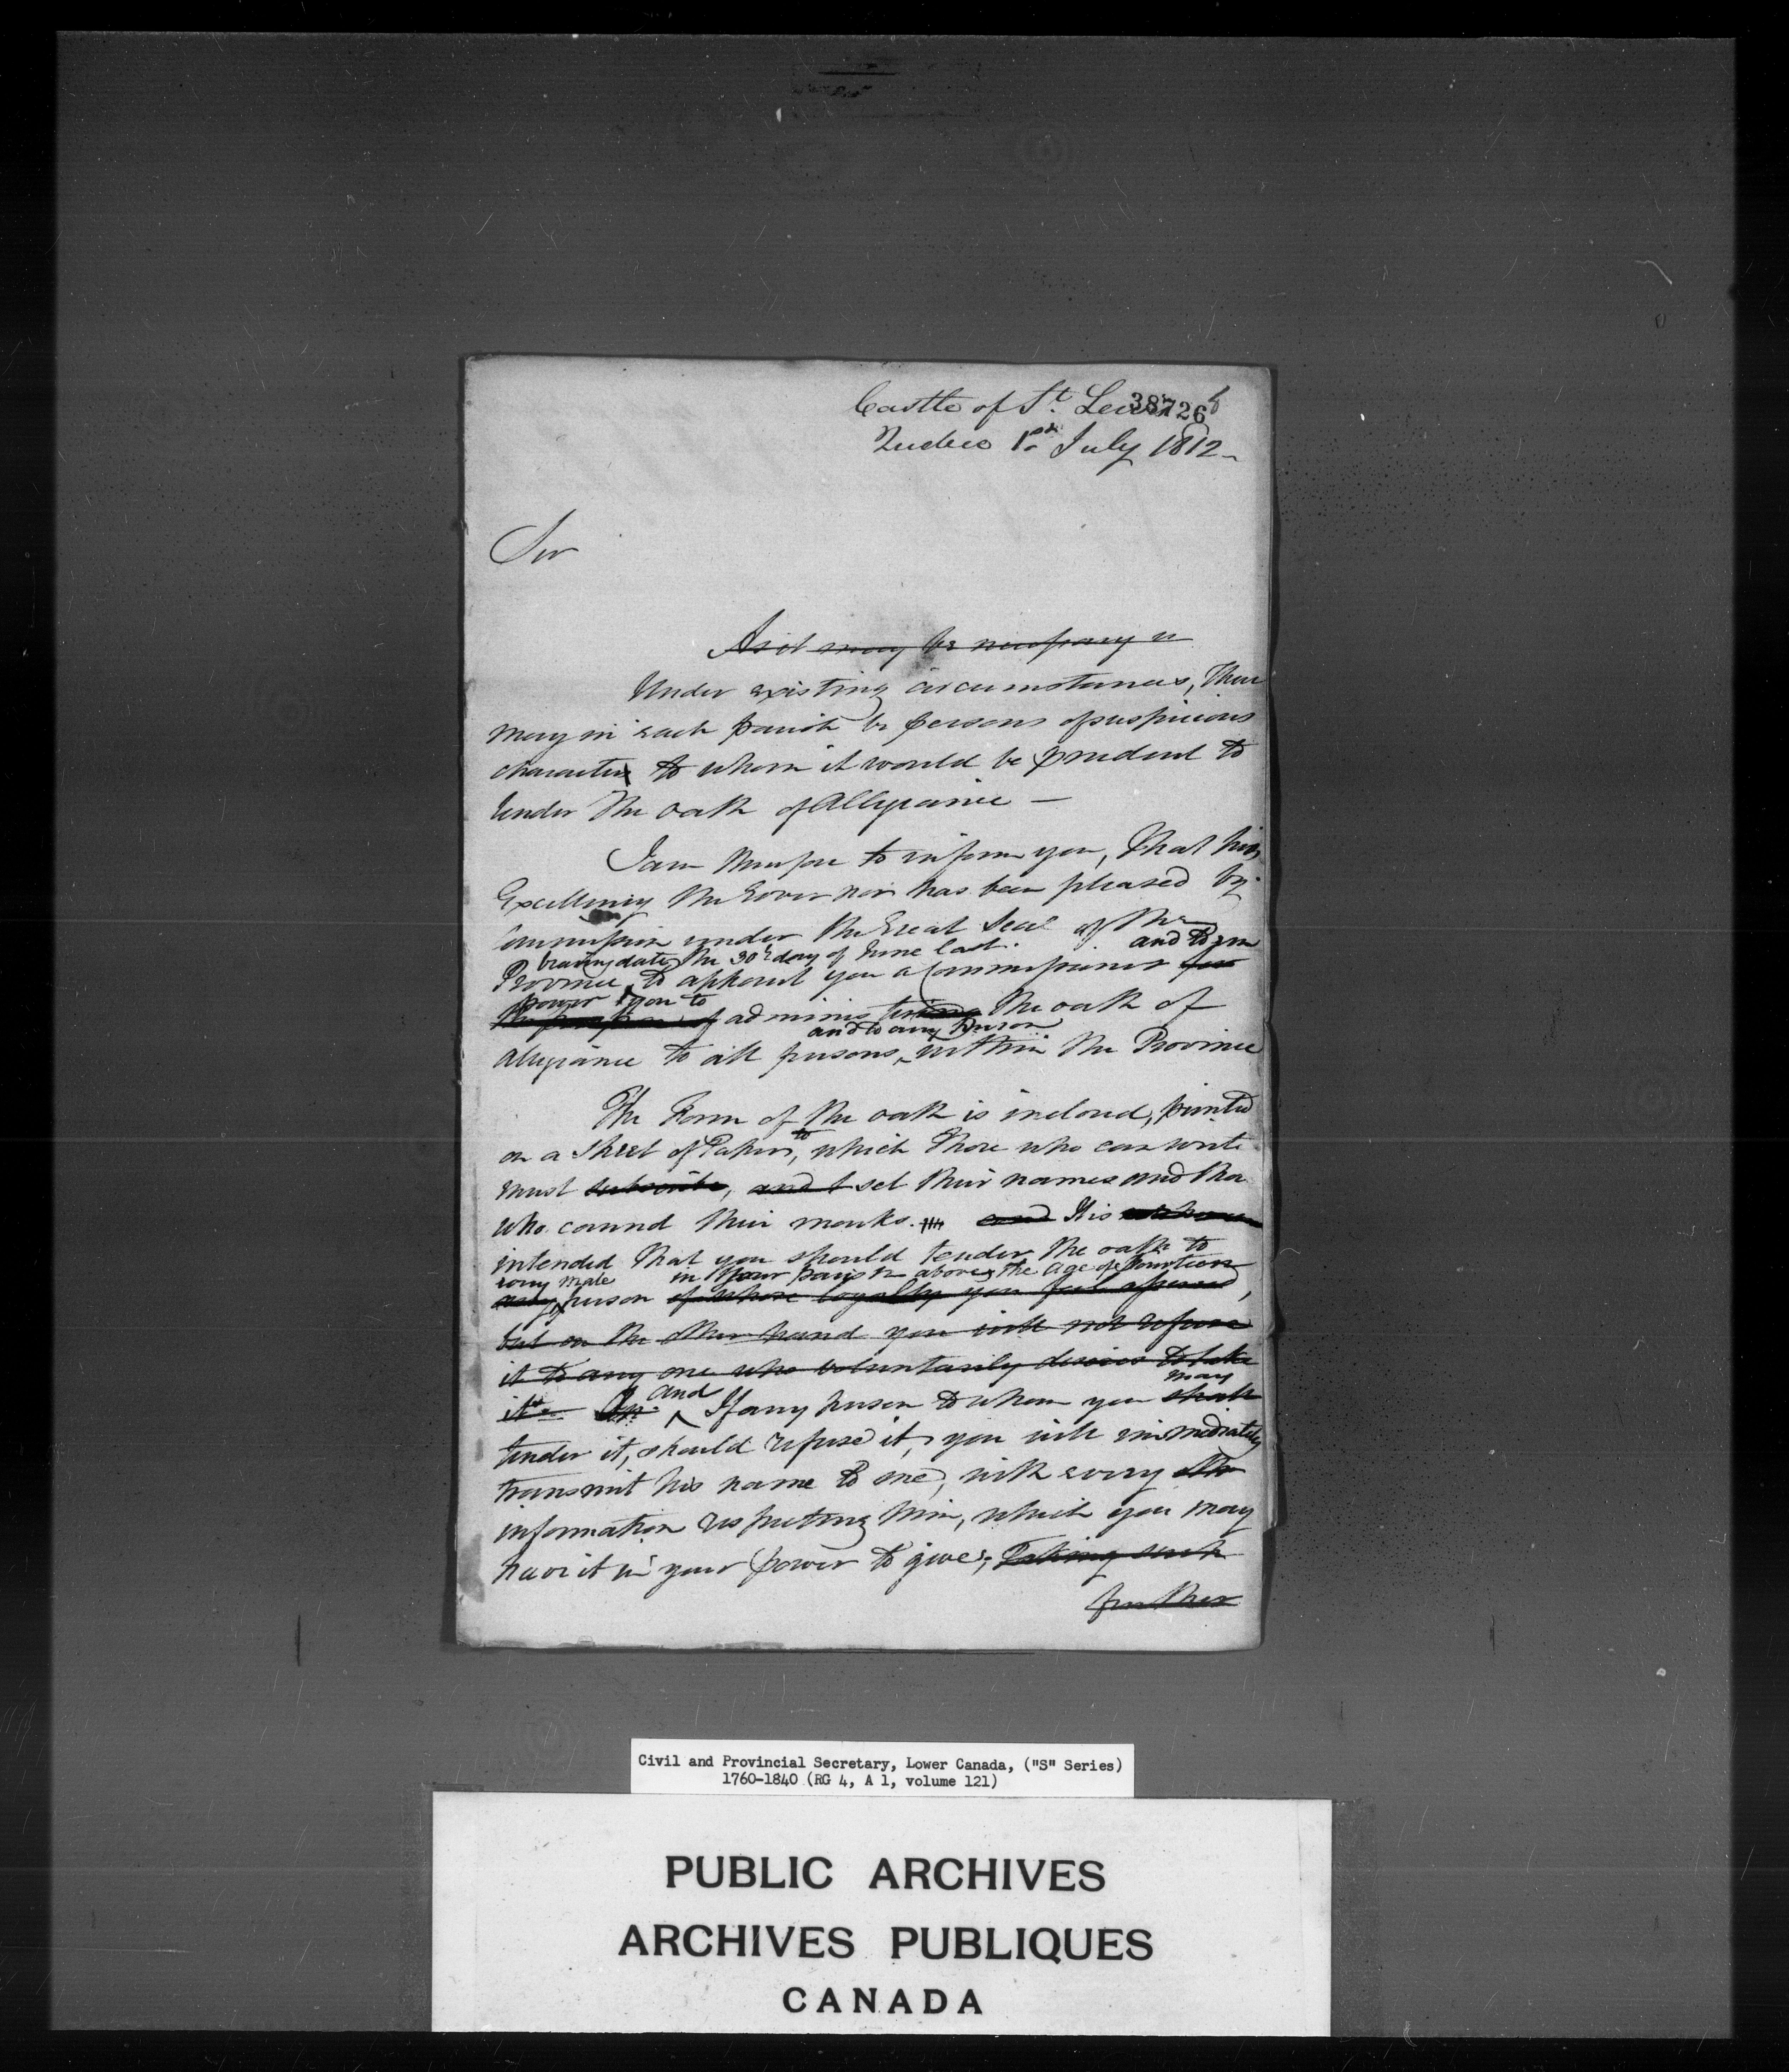 Castle of St. Lewis 38726 b
Quebec 1st July 1812
Sir
As it may be necessary in
Under existing circumstances, there
may in each parish be persons of suspicious
character to whom it would be prudent to
tender the oath of Allegiance —
I am therefore to inform you, that his
Excellency the Governor has been pleased by
Commission under the Great Seal of the
bearing date the 30th day of June last. and to em
Province, to appoint you a Commissioner for
power you to
the purpose of administering the oath of
and to any Person
allegiance to all persons, within the Province
The Form of the oath is inclosed, printed
on a Sheet of Paper, to which those who can write
must subscribe, and t set their names and tho
who cannot their marks. and It is
intended that you should tender the oath to
every male in your parish above the Age of fourteen
any person of whose loyalty you feel assured,
but on the other hand you will not refuse
it to any one who voluntarily desires to take
may
it and If any person to whom you shall
tender it, should refuse it, you will immediately
transmit his name to me, with every
information respecting him, which you may
have it in your power to give; Taking such
further
Civil and Provincial Secretary, Lower Canada, ("S" Series)
1760-1840 (RG 4, A 1, volume 121)
PUBLIC ARCHIVES
ARCHIVES PUBLIQUES
CANADA